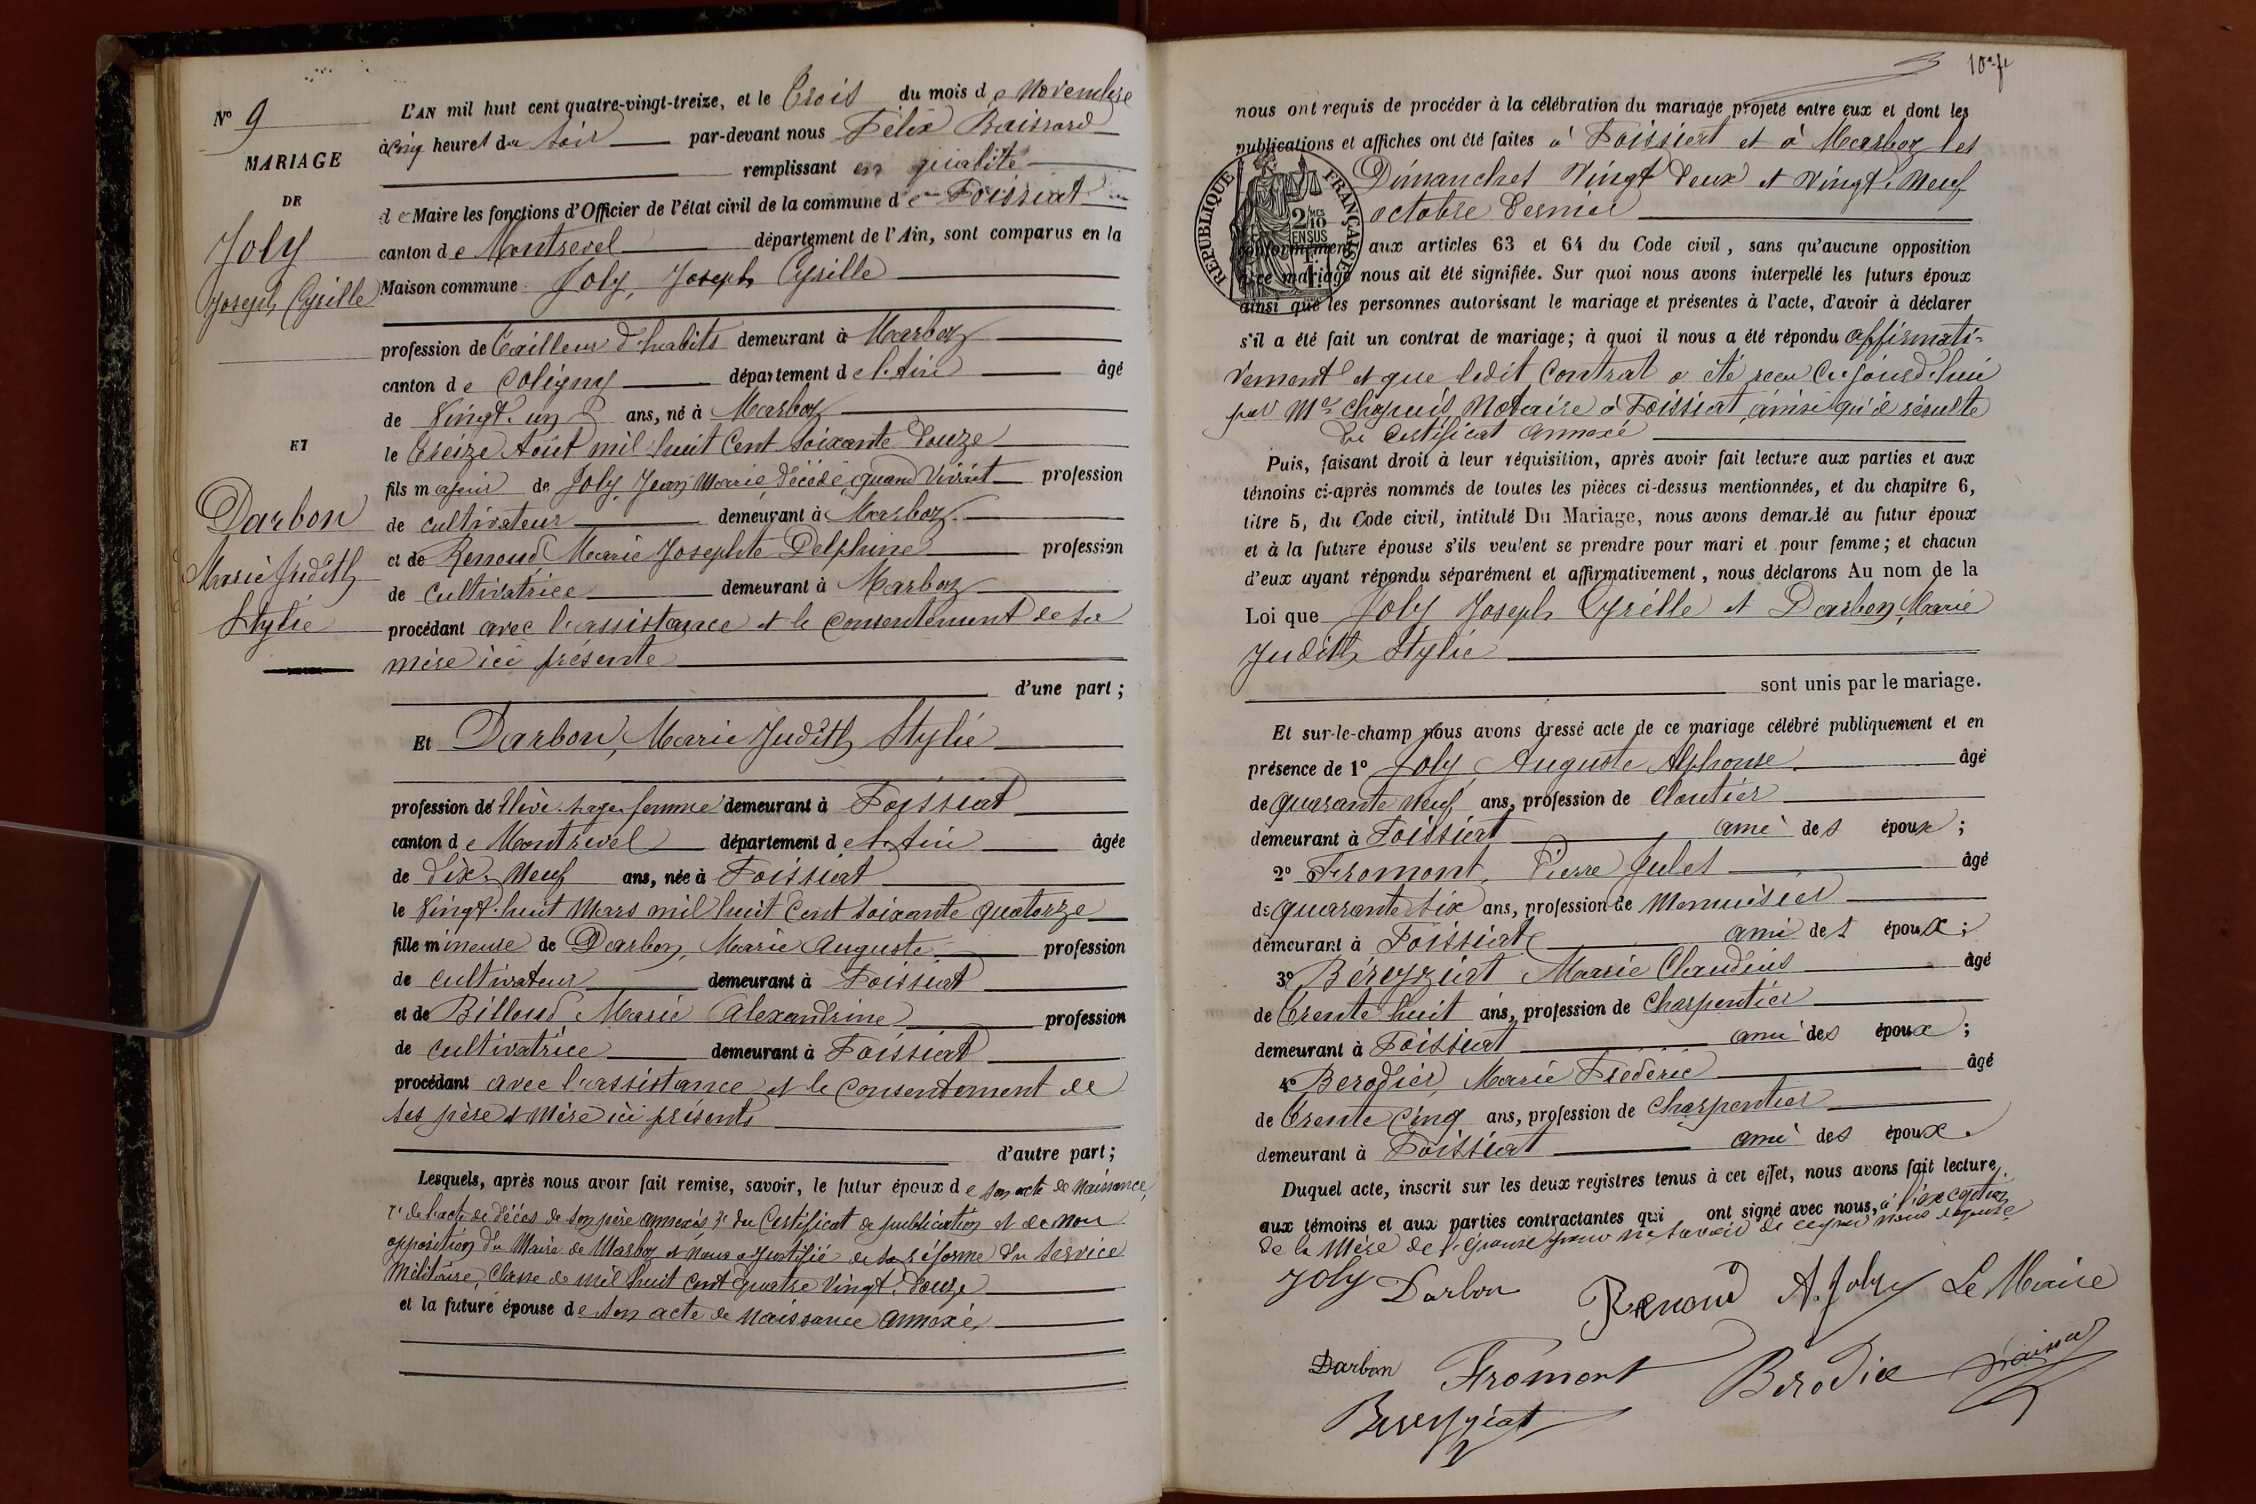 N° 9
MARIAGE
DE
Joly
Joseph Cyrille
ET
Darbon
Marie Judith
Stylie
L'AN mil huit cent quatre-vingt-treize, et le Trois du mois de Novembre
à Cinq heures du soir par-devant nous Félix Baissard
remplissant en qualité
de Maire les fonctions d'Officier de l'état civil de la commune de Foissiat
canton de Montrevel département de l'Ain, sont comparus en la
Maison commune Joly, Joseph Cyrille
profession de Tailleur d'habits demeurant à Marboz
canton de Coligny département de l'Ain âgé
de Vingt-un ans, né à Marboz
le treize Août mil huit Cent soixante douze
fils majeur de Joly, Jean Marie, décédé, quand vivait profession
de cultivateur demeurant à Marboz
et de Renoud, Marie Josephte Delphine profession
de Cultivatrice demeurant à Marboz
procédant avec l'assistance et le consentement de sa
mère ici présente
d'une part;
Et Darbon, Marie Judith Stylie
profession de Elève sage-femme demeurant à Foissiat
canton de Montrevel département de l'Ain âgée
de dix-Neuf ans, née à Foissiat
le Vingt-huit Mars mil huit Cent soixante quatorze
fille mineure de Darbon, Marie Auguste profession
de cultivateur demeurant à Foissiat
et de Billoud Marie Alexandrine profession
de cultivatrice demeurant à Foissiat
procédant avec l'assistance et le consentement de
ses père et mère ici présents
d'autre part;
Lesquels, après nous avoir fait remise, savoir, le futur époux de son acte de Naissance,
2° de l'acte de décès de son père annexés, 3° du Certificat de publication et de non
opposition du Maire de Marboz et nous a justifié de sa réforme du service
Militaire, Classe de mil huit cent quatre Vingt-douze
et la future épouse de son acte de naissance annexé,
nous ont requis de procéder à la célébration du mariage projeté entre eux et dont les
publications et affiches ont été faites à Foissiat et à Marboz les
Dimanches Vingt deux et Vingt-Neuf
octobre dernier
RÉPUBLIQUE FRANÇAISE
2/10 EN SUS
conformément aux articles 63 et 64 du Code civil, sans qu'aucune opposition
à ce mariage nous ait été signifiée. Sur quoi nous avons interpellé les futurs époux
ainsi que les personnes autorisant le mariage et présentes à l'acte, d'avoir à déclarer
s'il a été fait un contrat de mariage; à quoi il nous a été répondu affirmati-
vement et que ledit Contrat a été reçu Ce jourd'hui
par Me Chapuis, Notaire à Foissiat, ainsi qu'il résulte
du Certificat annexé
Puis, faisant droit à leur réquisition, après avoir fait lecture aux parties et aux
témoins ci-après nommés de toutes les pièces ci-dessus mentionnées, et du chapitre 6,
titre 5, du Code civil, intitulé Du Mariage, nous avons demandé au futur époux
et à la future épouse s'ils veulent se prendre pour mari et pour femme; et chacun
d'eux ayant répondu séparément et affirmativement, nous déclarons Au nom de la
Loi que Joly Joseph Cyrille et Darbon, Marie
Judith Stylie
sont unis par le mariage.
Et sur-le-champ nous avons dressé acte de ce mariage célébré publiquement et en
présence de 1° Joly Auguste Alphonse âgé
de quarante Neuf ans, profession de Cloutier
demeurant à Foissiat ami des époux;
2° Fromont, Pierre Jules âgé
de quarante six ans, profession de Menuisier
demeurant à Foissiat ami des époux;
3° Béreyziat Marie Claudius âgé
de trente huit ans, profession de Charpentier
demeurant à Foissiat ami des époux;
4° Berodier, Marie Frédéric âgé
de trente Cinq ans, profession de Charpentier
demeurant à Foissiat ami des époux.
Duquel acte, inscrit sur les deux registres tenus à cet effet, nous avons fait lecture
aux témoins et aux parties contractantes qui ont signé avec nous, à l'exception
de la Mère de l'épouse pour ne savoir de ce par nous requise
Joly Darbon Renoud A. Joly Le Maire
Darbon Fromont Berodier
Bereyziat